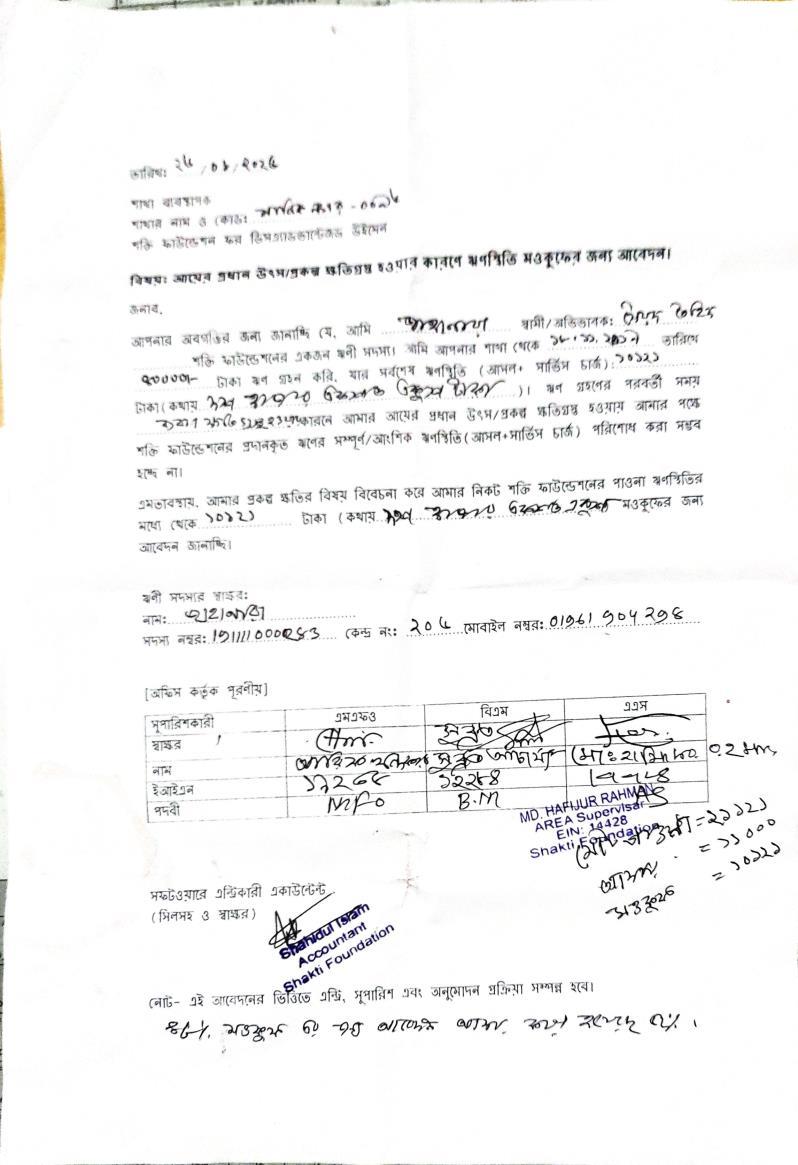 তারিখ: ২৫/০৯/২০২৫
শাখা ব্যবস্থাপক
শাখার নাম ও কোড:
শক্তি ফাউন্ডেশন ফর ডিসএ্যাডভান্টেজড উইমেন
বিষয়: আয়ের প্রধান উৎস/প্রকল্প ক্ষতিগ্রস্ত হওয়ার কারণে ঋণস্থিতি মওকুফের জন্য আবেদন।
জনাব,
আপনার অবগতির জন্য জানাচ্ছি যে, আমি জাহানারা স্বামী/অভিভাবক:
শক্তি ফাউন্ডেশনের একজন ঋণী সদস্য। আমি আপনার শাখা থেকে তারিখে
২০০০০/- টাকা ঋণ গ্রহন করি, যার সর্বশেষ ঋণস্থিতি (আসল+ সার্ভিস চার্জ): ১০১২১
টাকা (কথায় দশ হাজার একশত একুশ টাকা)। ঋণ গ্রহণের পরবর্তী সময়
কারনে আমার আয়ের প্রধান উৎস/প্রকল্প ক্ষতিগ্রস্ত হওয়ায় আমার পক্ষে
শক্তি ফাউন্ডেশনের প্রদানকৃত ঋণের সম্পূর্ণ/আংশিক ঋণস্থিতি (আসল+সার্ভিস চার্জ) পরিশোধ করা সম্ভব
হচ্ছে না।
এমতাবস্থায়, আমার প্রকল্প ক্ষতির বিষয় বিবেচনা করে আমার নিকট শক্তি ফাউন্ডেশনের পাওনা ঋণস্থিতির
মধ্যে থেকে ১০১২১ টাকা (কথায় দশ হাজার একশত একুশ মওকুফের জন্য
আবেদন জানাচ্ছি।
ঋণী সদস্যর স্বাক্ষর:
নাম: জাহানারা
সদস্য নম্বর: কেন্দ্র নং: ২০৫ মোবাইল নম্বর: 01961 904 298
[অফিস কর্তৃক পূরণীয়]
সুপারিশকারী এমএফও বিএম এএস
স্বাক্ষর
নাম
ইআইএন ১২২৮৪
পদবী MFO B.M AS
MD. HAFIJUR RAHMAN
AREA Supervisar
EIN: 14428
Shakti Foundation
= ২১১২১
= ১১০০০
মওকুফ = ১০১২১
সফটওয়ারে এন্ট্রিকারী একাউন্টেন্ট
(সিলসহ ও স্বাক্ষর)
Shahidul Islam
Accountant
Shakti Foundation
নোট- এই আবেদনের ভিত্তিতে এন্ট্রি, সুপারিশ এবং অনুমোদন প্রক্রিয়া সম্পন্ন হবে।